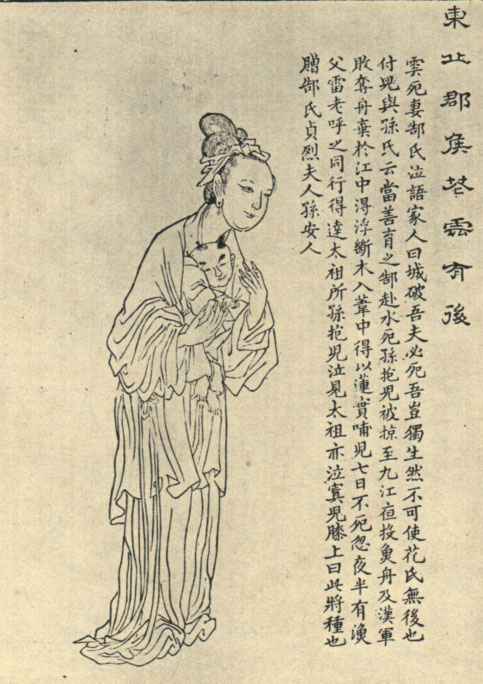 東丘郡侯花雲有後
雲死妻郜氏泣語家人曰城破吾夫必死吾豈獨生然不可使花氏無後也
付兒與孫氏云當善育之郜赴水死孫抱兒被掠至九江夜投魚舟及漢軍
敗奪舟棄於江中得浮斷木入葦中得以蓮實哺兒七日不死忽夜半有漁
父雷老呼之同行得達太祖所孫抱兒泣見太祖亦泣寘兒膝上曰此將種也
贈郜氏貞烈夫人孫安人